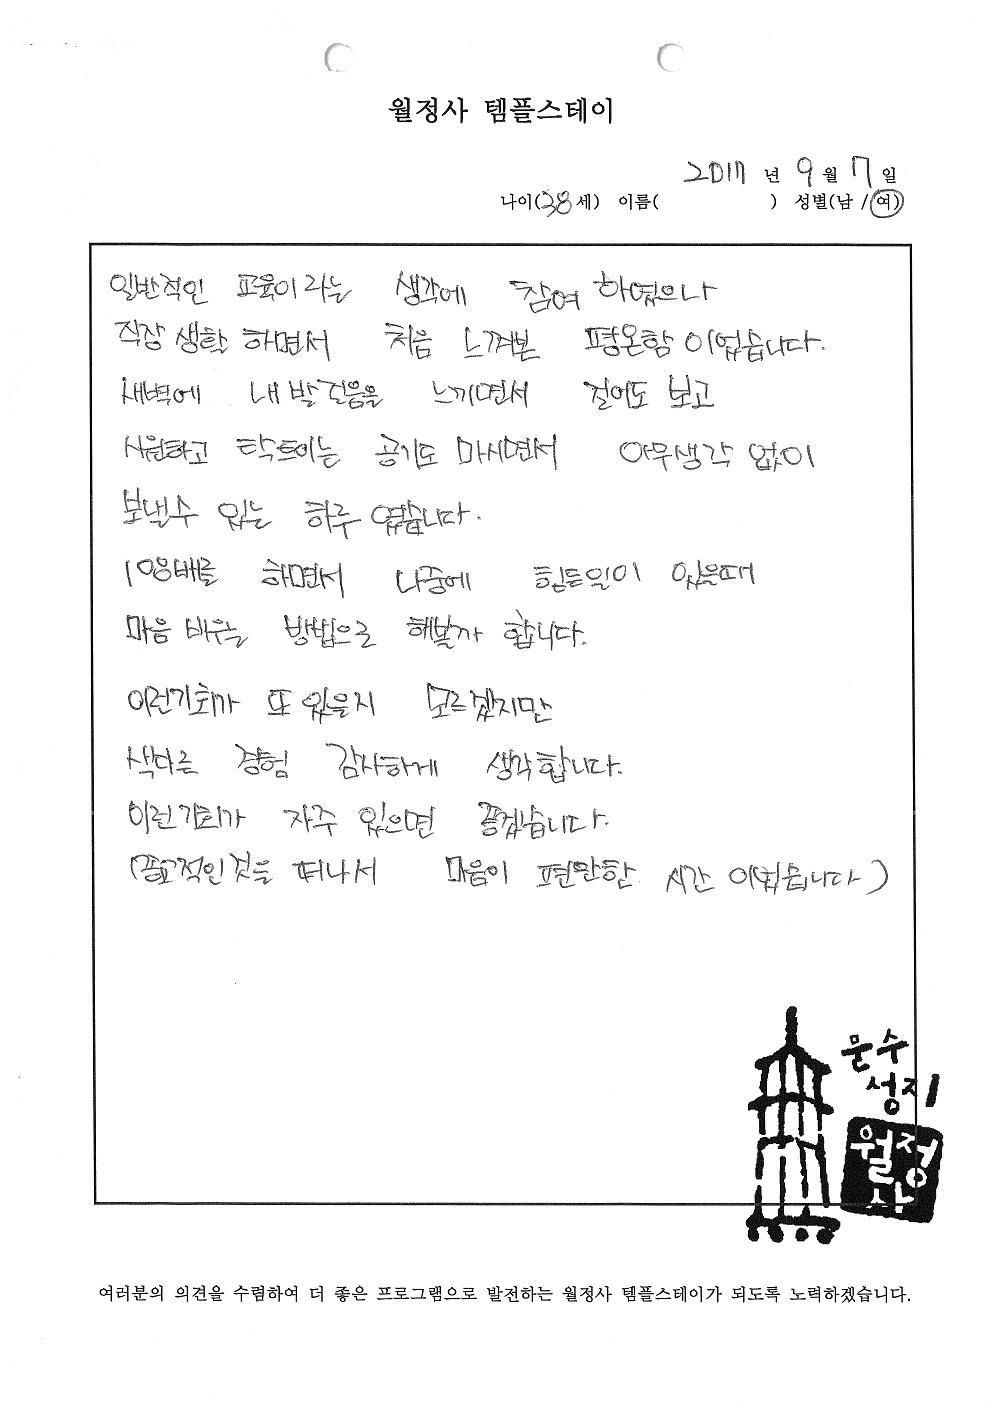 월정사 템플스테이
2017 년 9 월 7 일
나이(38세) 이름( ) 성별(남 /여)
일반적인 교육이라는 생각에 참여 하였으나
직장 생활 하면서 처음 느껴본 평온함 이었습니다.
새벽에 내 발걸음을 느끼면서 걸어도 보고
시원하고 탁트이는 공기도 마시면서 아무생각 없이
보낼수 있는 하루 였습니다.
108배를 하면서 나중에 힘든일이 있을때
마음 비우는 방법으로 해볼까 합니다.
이런기회가 또 있을지 모르겠지만
색다른 경험 감사하게 생각합니다.
이런기회가 자주 있으면 좋겠습니다.
(종교적인것을 떠나서 마음이 편안한 시간 이었습니다)
문수
성지
월정
사
여러분의 의견을 수렴하여 더 좋은 프로그램으로 발전하는 월정사 템플스테이가 되도록 노력하겠습니다.